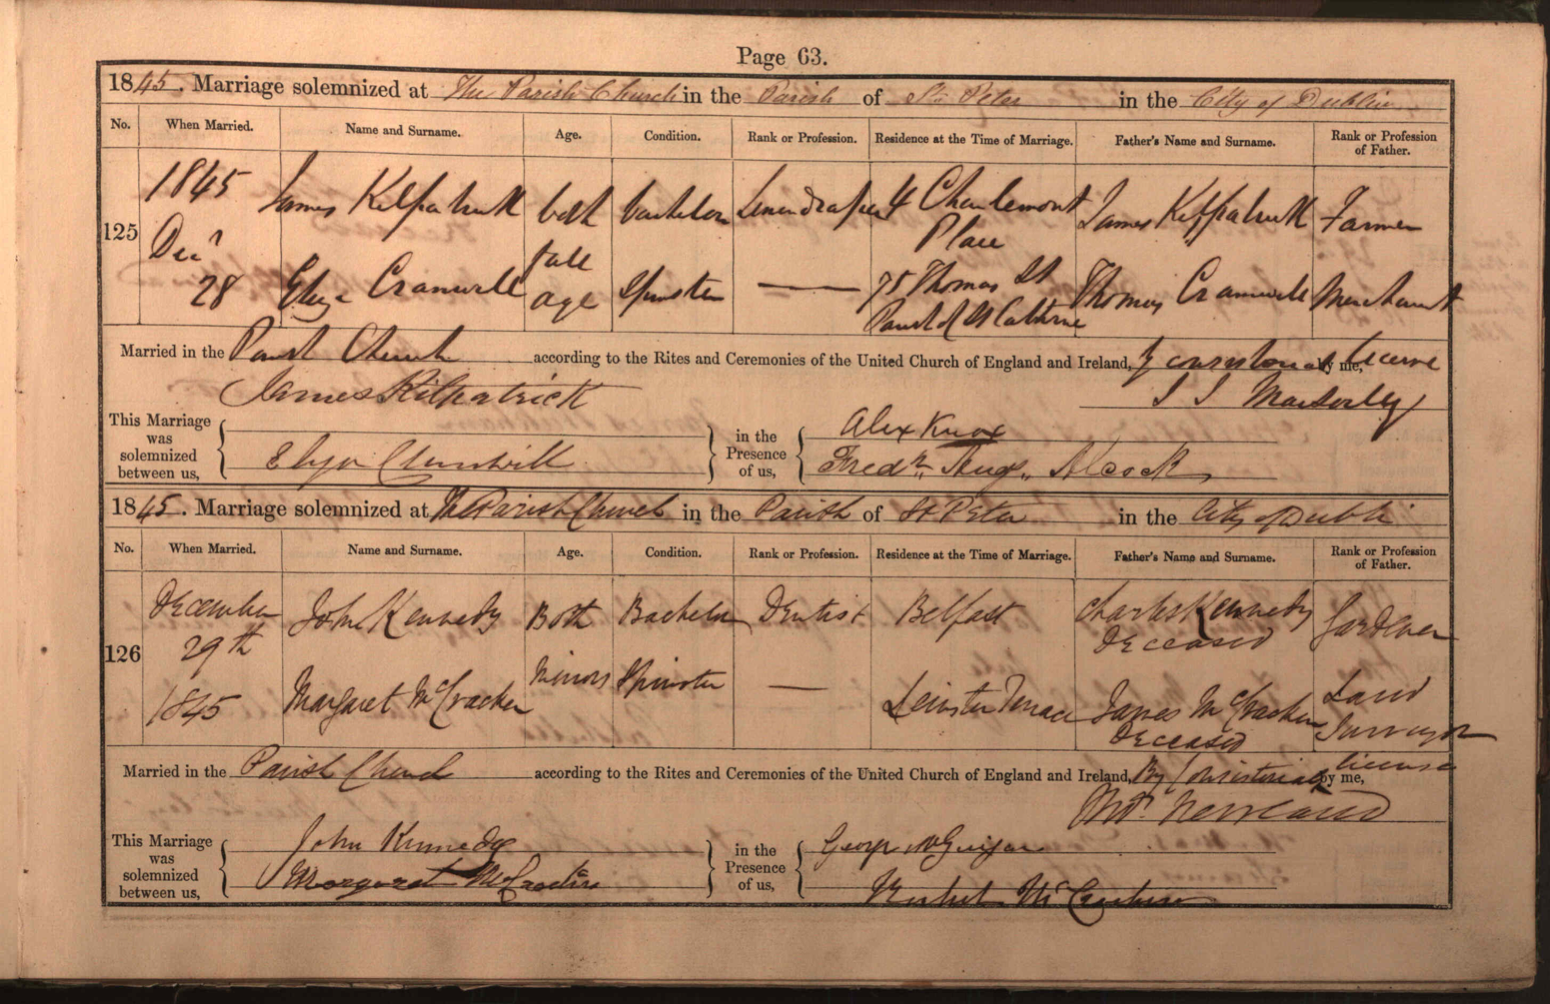 Page 63.
1845. Marriage solemnized at The Parish Church in the Parish of St. Peter in the City of Dublin
No. When Married. Name and Surname. Age. Condition. Rank or Profession. Residence at the Time of Marriage. Father's Name and Surname. Rank or Profession of Father.
125
1845 James Kilpatrick both bachelor Linendraper 4 Charlemont James Kilpatrick Farmer
Decr Place
28 Eliza Cranwill full age Spinster — 75 Thomas St Thomas Cranwill Merchant
Parish of St Cathrine
Married in the Parish Church according to the Rites and Ceremonies of the United Church of England and Ireland, by consistorial licence by me,
James Kilpatrick J J
This Marriage was solemnized between us, Eliza Cranwill in the Presence of us, Alex Knox
Fredk. Augs. Alcock
1845. Marriage solemnized at The Parish Church in the Parish of St Peter in the City of Dublin
No. When Married. Name and Surname. Age. Condition. Rank or Profession. Residence at the Time of Marriage. Father's Name and Surname. Rank or Profession of Father.
126
December John Kennedy Both Bachelor Dentist Belfast Charles Kennedy Gardener
29th Deceased
1845 Margaret McCracken Minors Spinster — Leinster Terrace James McCracken Land Surveyor
Deceased
Married in the Parish Church according to the Rites and Ceremonies of the United Church of England and Ireland, By Consistorial license by me,
This Marriage was solemnized between us, John Kennedy in the Presence of us, George
Margaret McCracken McCracken